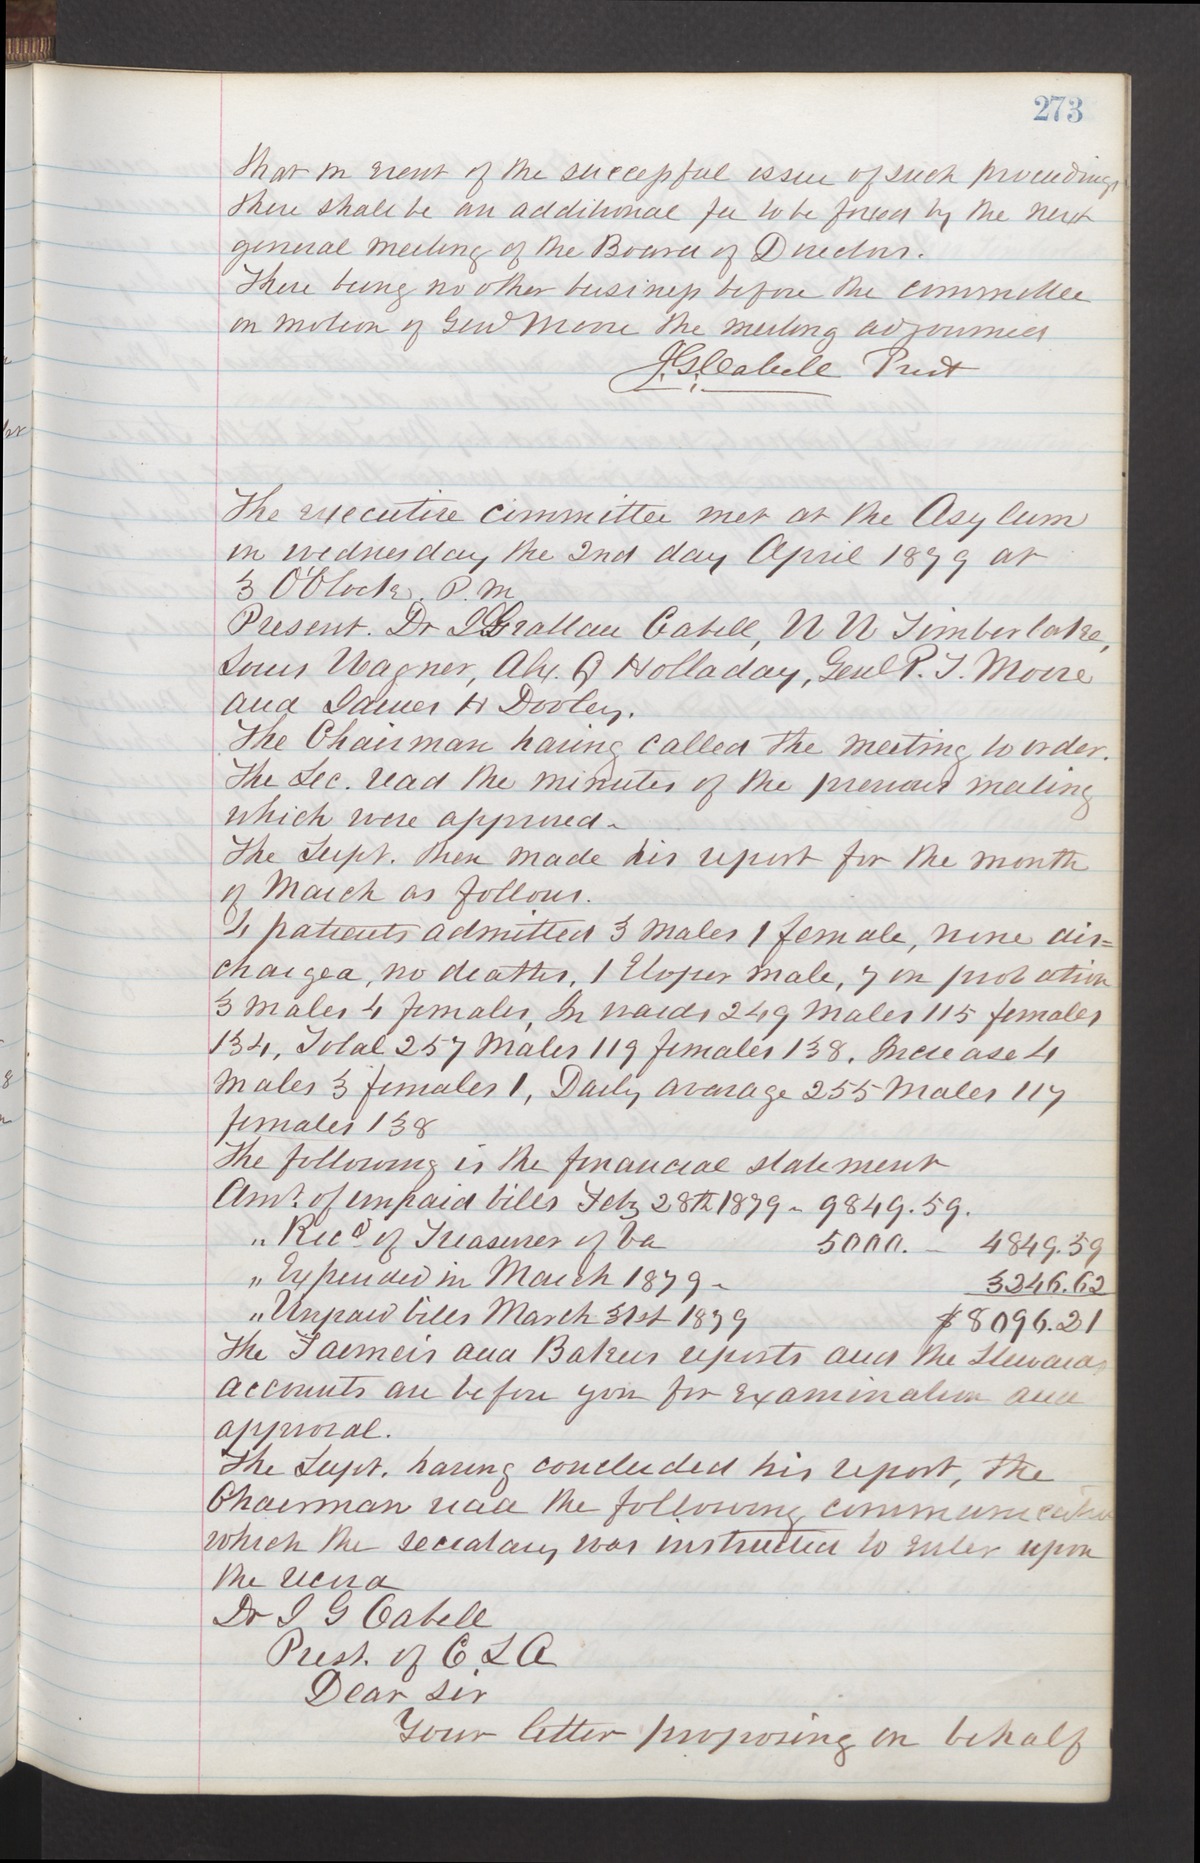 273
that in event of the successful issue of such proceedings
there shall be an additional fee to be fixed by the next
general meeting of the Board of Directors.
There being no other business before the committee
on motion of Genl Moore the meeting adjourned
J. G. Cabell Prest
The executive committee met at the Asylum
on wednesday the 2nd day April 1879 at
3 O'Clock. P.M
Present. Dr J Grattan Cabell, W W Timberlake,
Louis Wagner, Alx. Q Holladay, Genl P. T. Moore
and James H Dooley.
The Chairman having called the meeting to order.
The Sec. read the minutes of the previous meeting
which were approved.
The Supt. then made his report for the month
of March as follows.
4 patients admitted 3 males 1 female, none dis=
charged, no deaths, 1 Eloper male, 7 on probation
3 males 4 females, In wards 249 Males 115 females
134, Total 257 Males 119 females 138. Increase 4
males 3 females 1, Daily avarage 255 Males 117
females 138
The following is the financial statement
Amt. of unpaid bills Feby 28th 1879 - 9849.59.
„ Recd of Treasurer of Va 5000. - 4849.59
„ Expended in March 1879 - 3246.62
„ Unpaid bills March 31st 1879 $8096.21
The Farmers and Bakers reports and the Stewards
accounts are before you for examination and
approval.
The Supt. having concluded his report, the
Chairman read the following communication
which the secretary was instructed to enter upon
the record
Dr J G Cabell
Prest. of C L A
Dear Sir
Your letter proposing on behalf